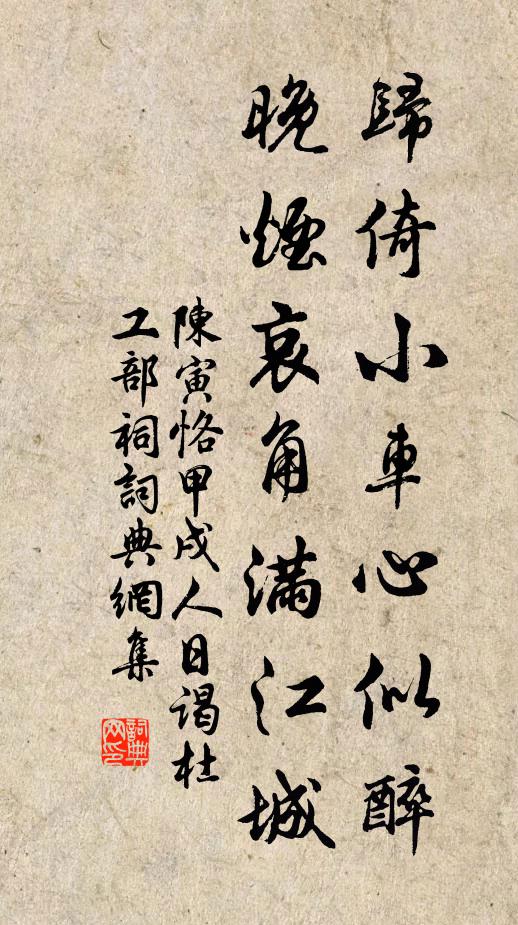 歸倚小車心似醉
晚煙哀角滿江城
陳寅恪甲戌人日謁杜
工部祠詞典網集
詞典網印